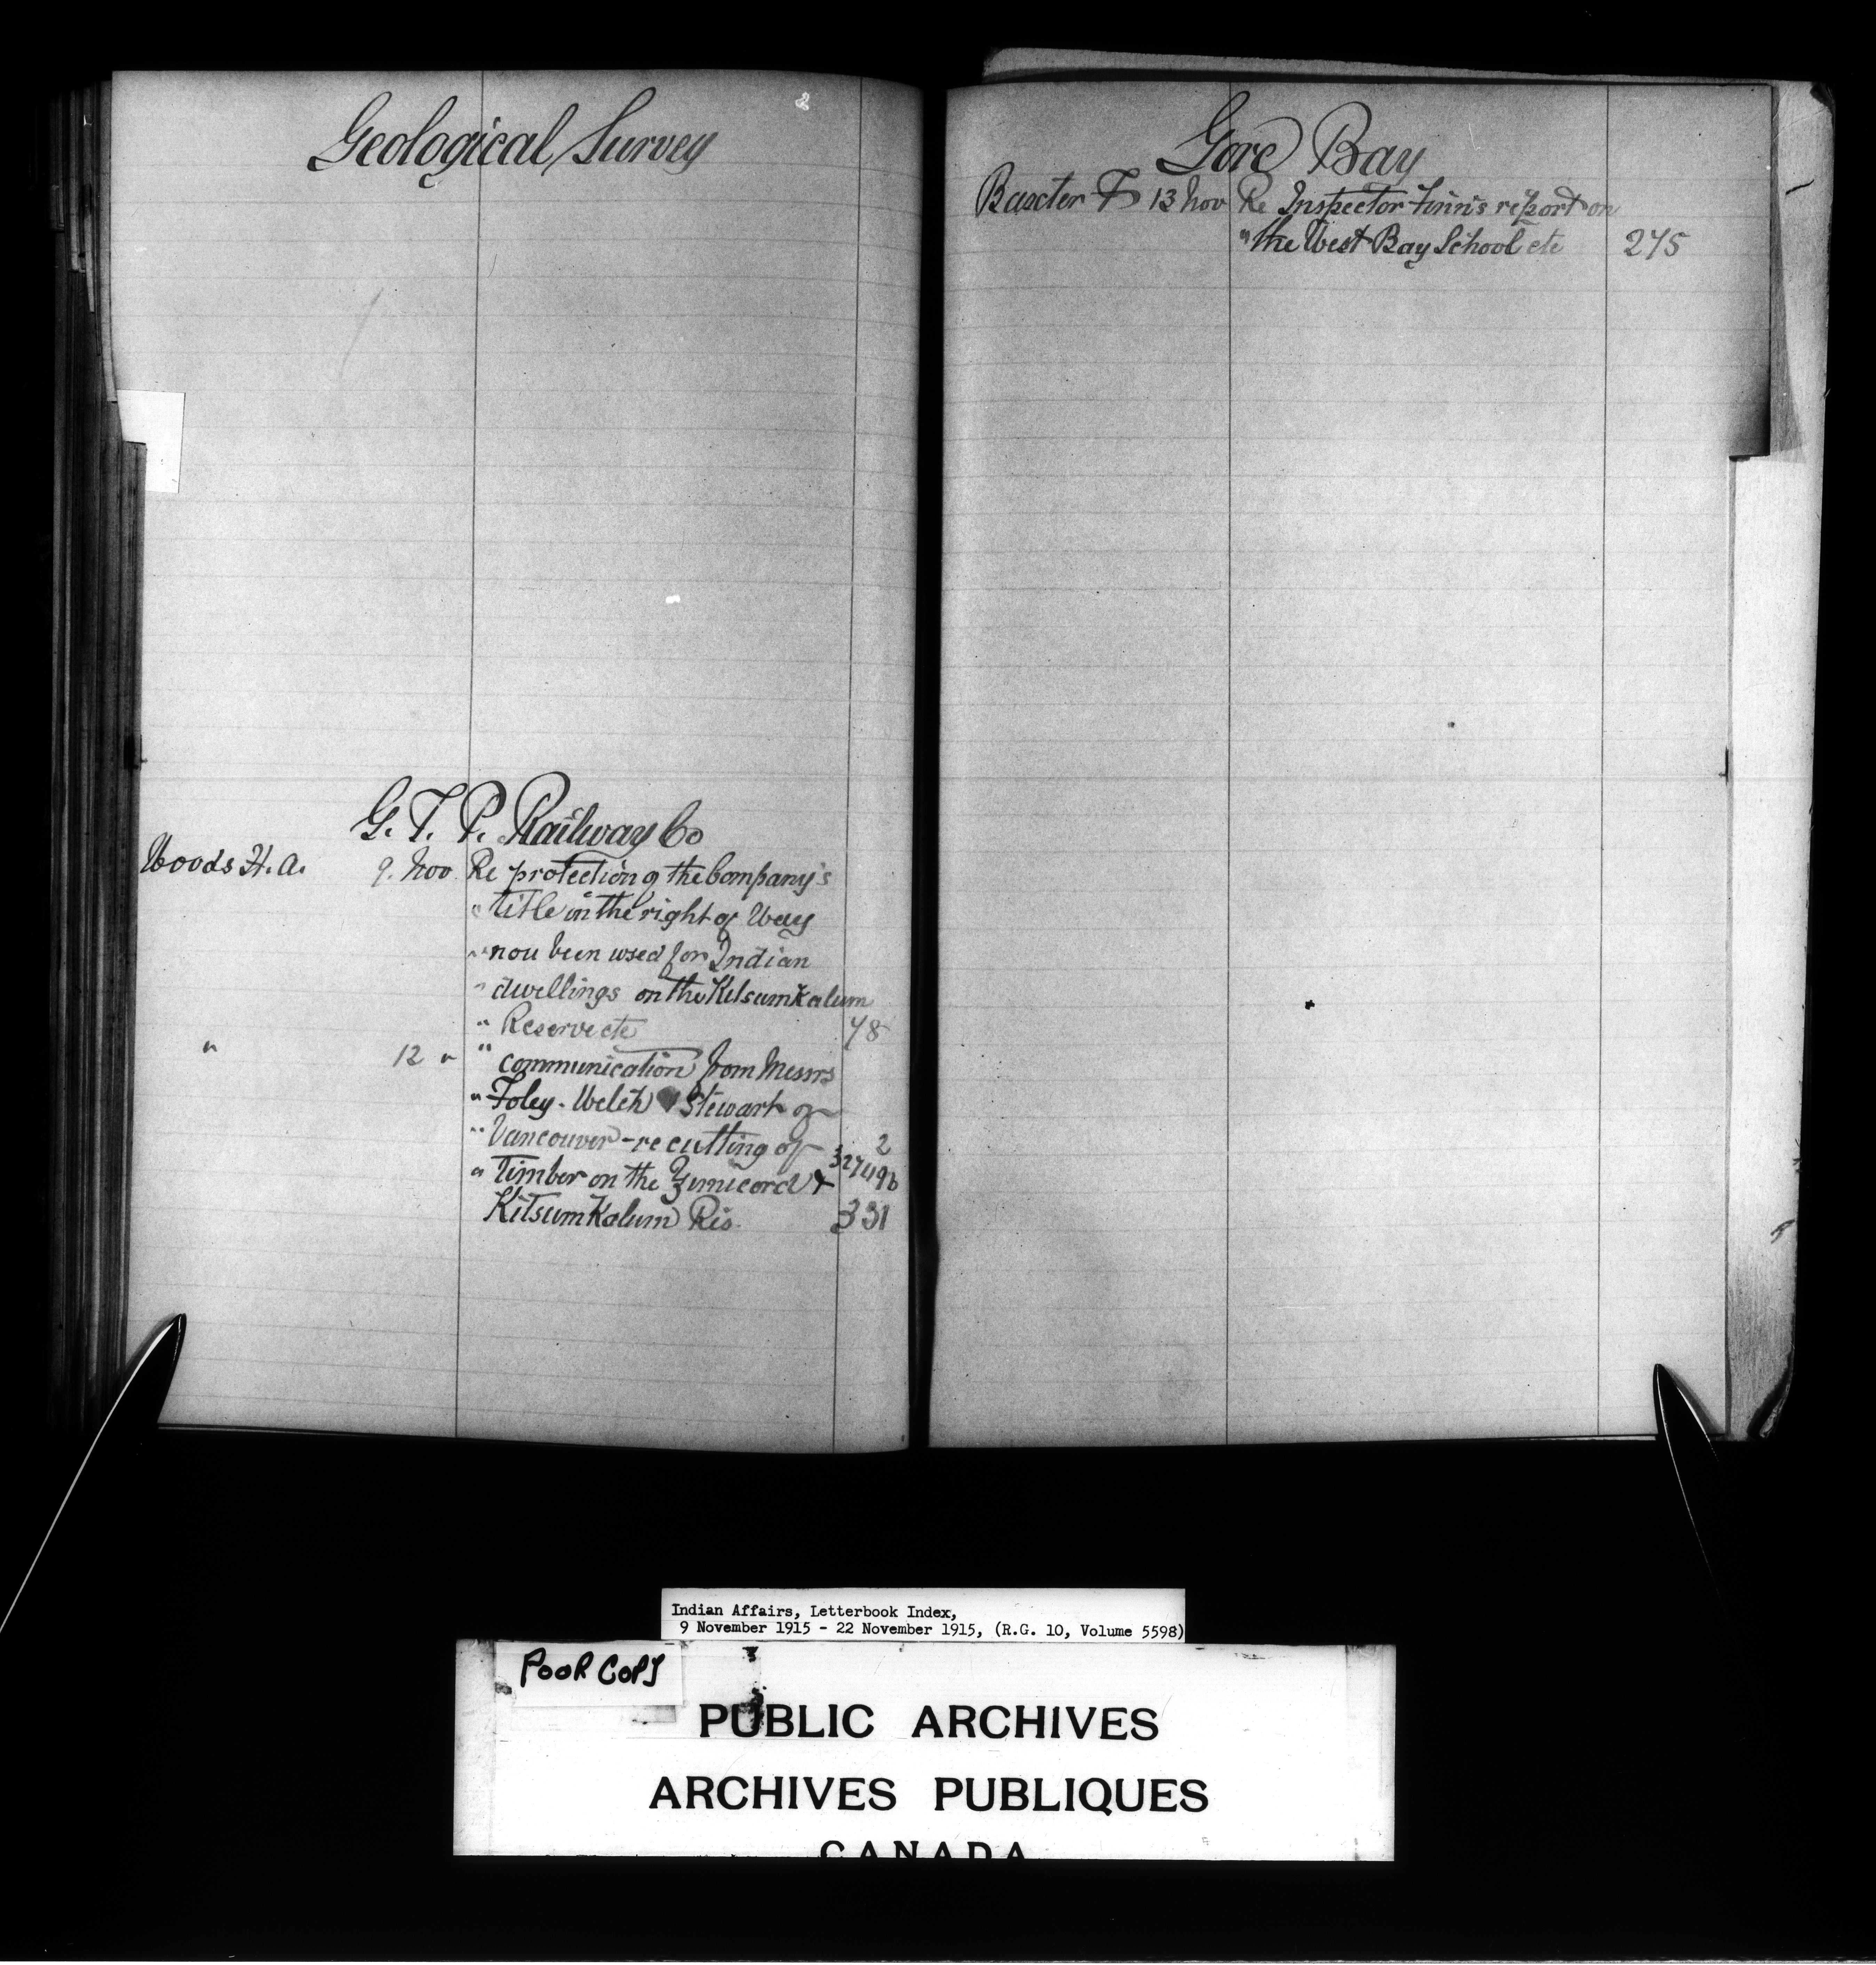 Geological Survey
G. T. P. Railway Co
Woods H. A. 9. Nov. Re protection of the Company's
" title in the right of Way
" now been used for Indian
" dwellings on the Kitsumkalum
" Reserve etc 78
" 12 " " communication from Messrs
" Foley - Welch & Stewart of
" Vancouver - re cutting of 2
" Timber on the Zimicord &
Kitsumkalum Res. 331
Gore Bay
Baxter F 13 Nov Re Inspector Finn's report on
" the West Bay School etc 275
Indian Affairs, Letterbook Index,
9 November 1915 - 22 November 1915, (R.G. 10, Volume 5598)
POOR COPY
PUBLIC ARCHIVES
ARCHIVES PUBLIQUES
CANADA